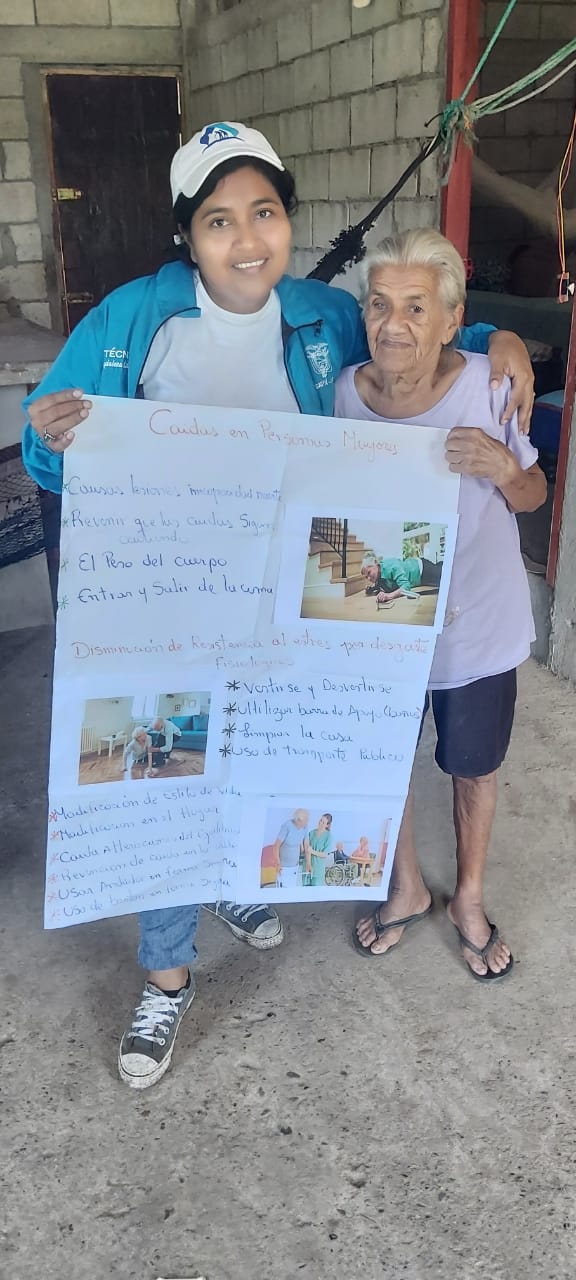 TÉCN
Caidas en Personas Mayores
Causas lesiones incapacidad muerte
Revenir que las caidas Sigan
causando
El Peso del cuerpo
Entrar y Salir de la cama
Disminución de Resistencia al estres por desgaste
Fisiologicas
Vestirse y Desvestirse
Utilizar barra de Apoyo (baños)
Limpiar la casa
Uso de transporte Publico
Modificación de Estilo de Vida
Modificacions en el Hogar
Caida Alteraciones del Equilibrio
Revención de caida en la
Usar Andador en forma Segura
Uso de baston en forma Segura